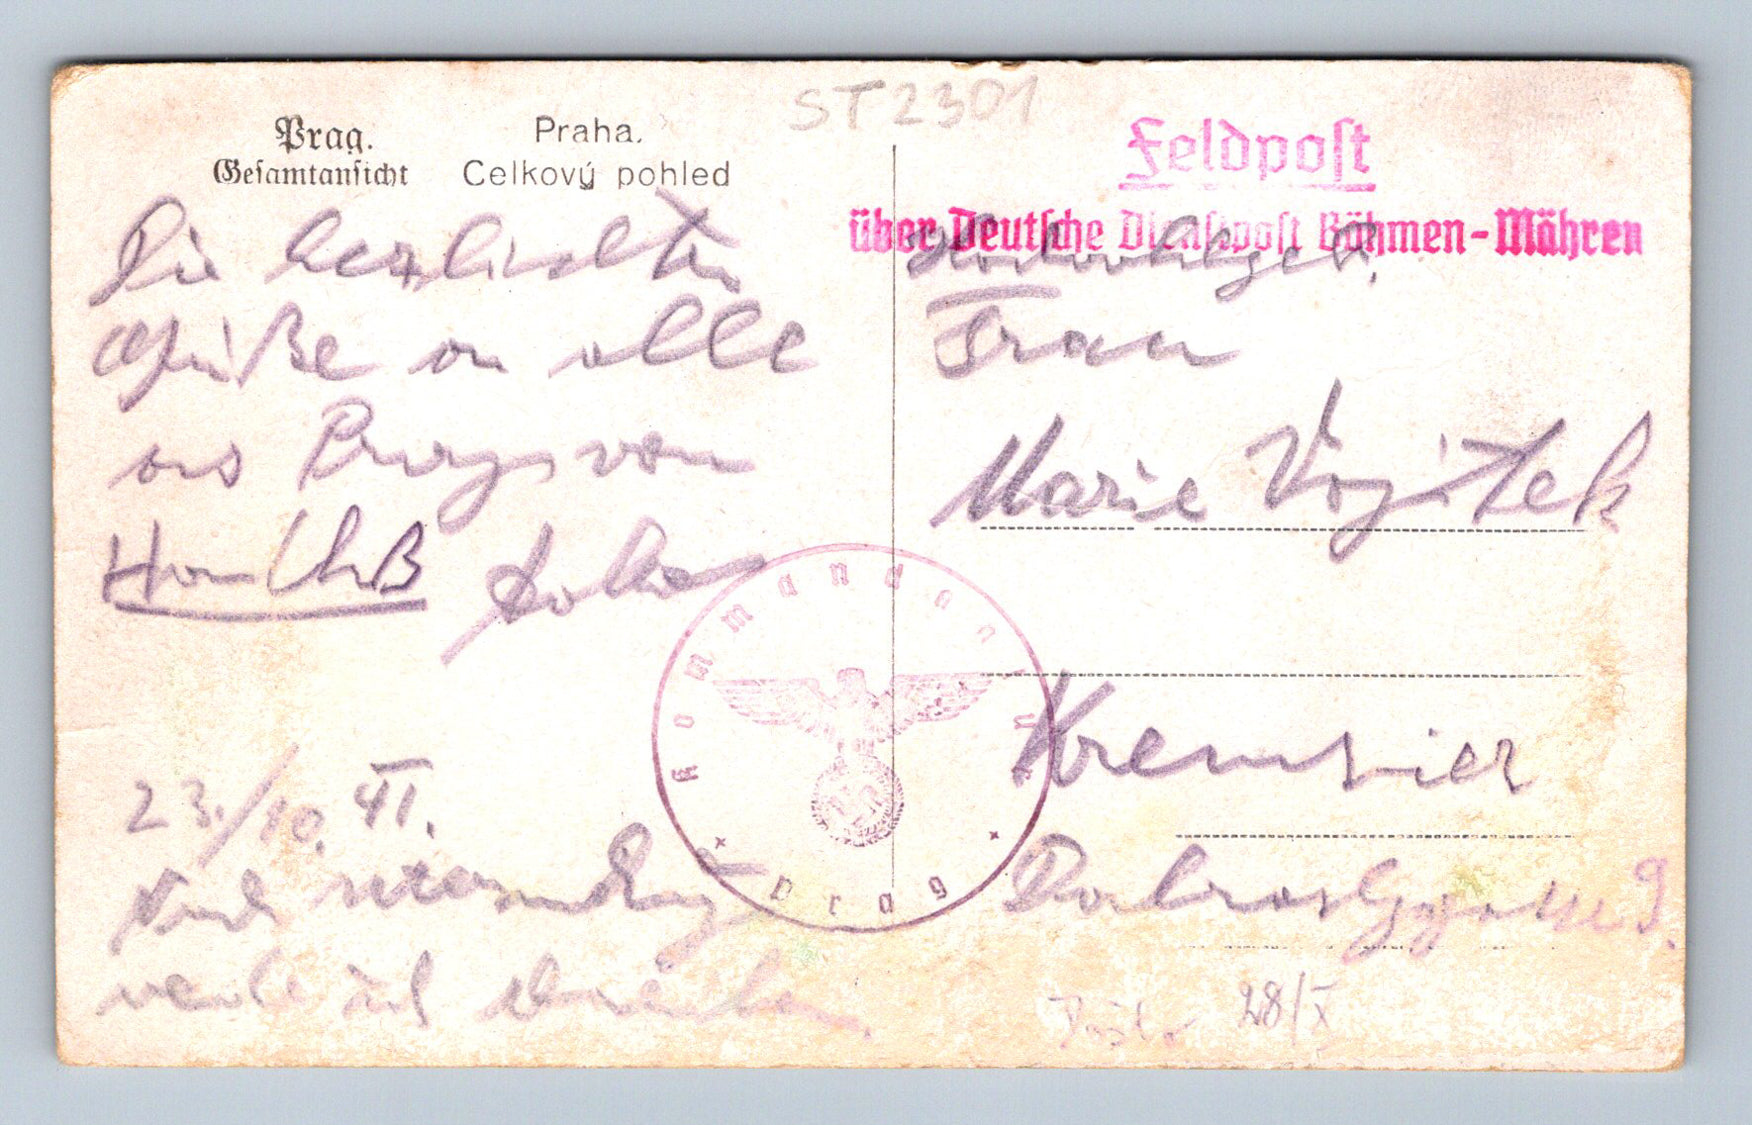 ST2301
Prag.
Gesamtansicht
Praha.
Celkový pohled
Feldpost
über Deutsche Dienstpost Böhmen-Mähren
Die herzlichsten
Grüße an alle
aus Prag von
23./10. 41.
werde ich schreiben.
Frau
Marie Vojitek
Kremsier
9.
28/X
Kommandantur
Prag